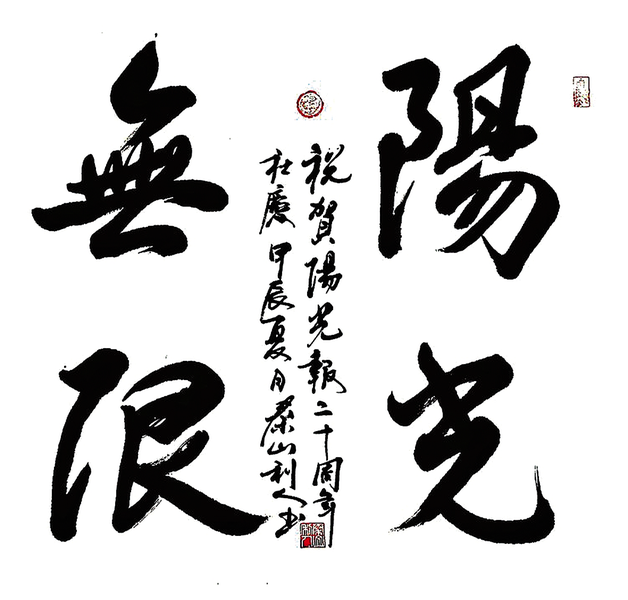 陽光
無限
祝賀陽光報二十周年
社慶甲辰夏月泰山利人书